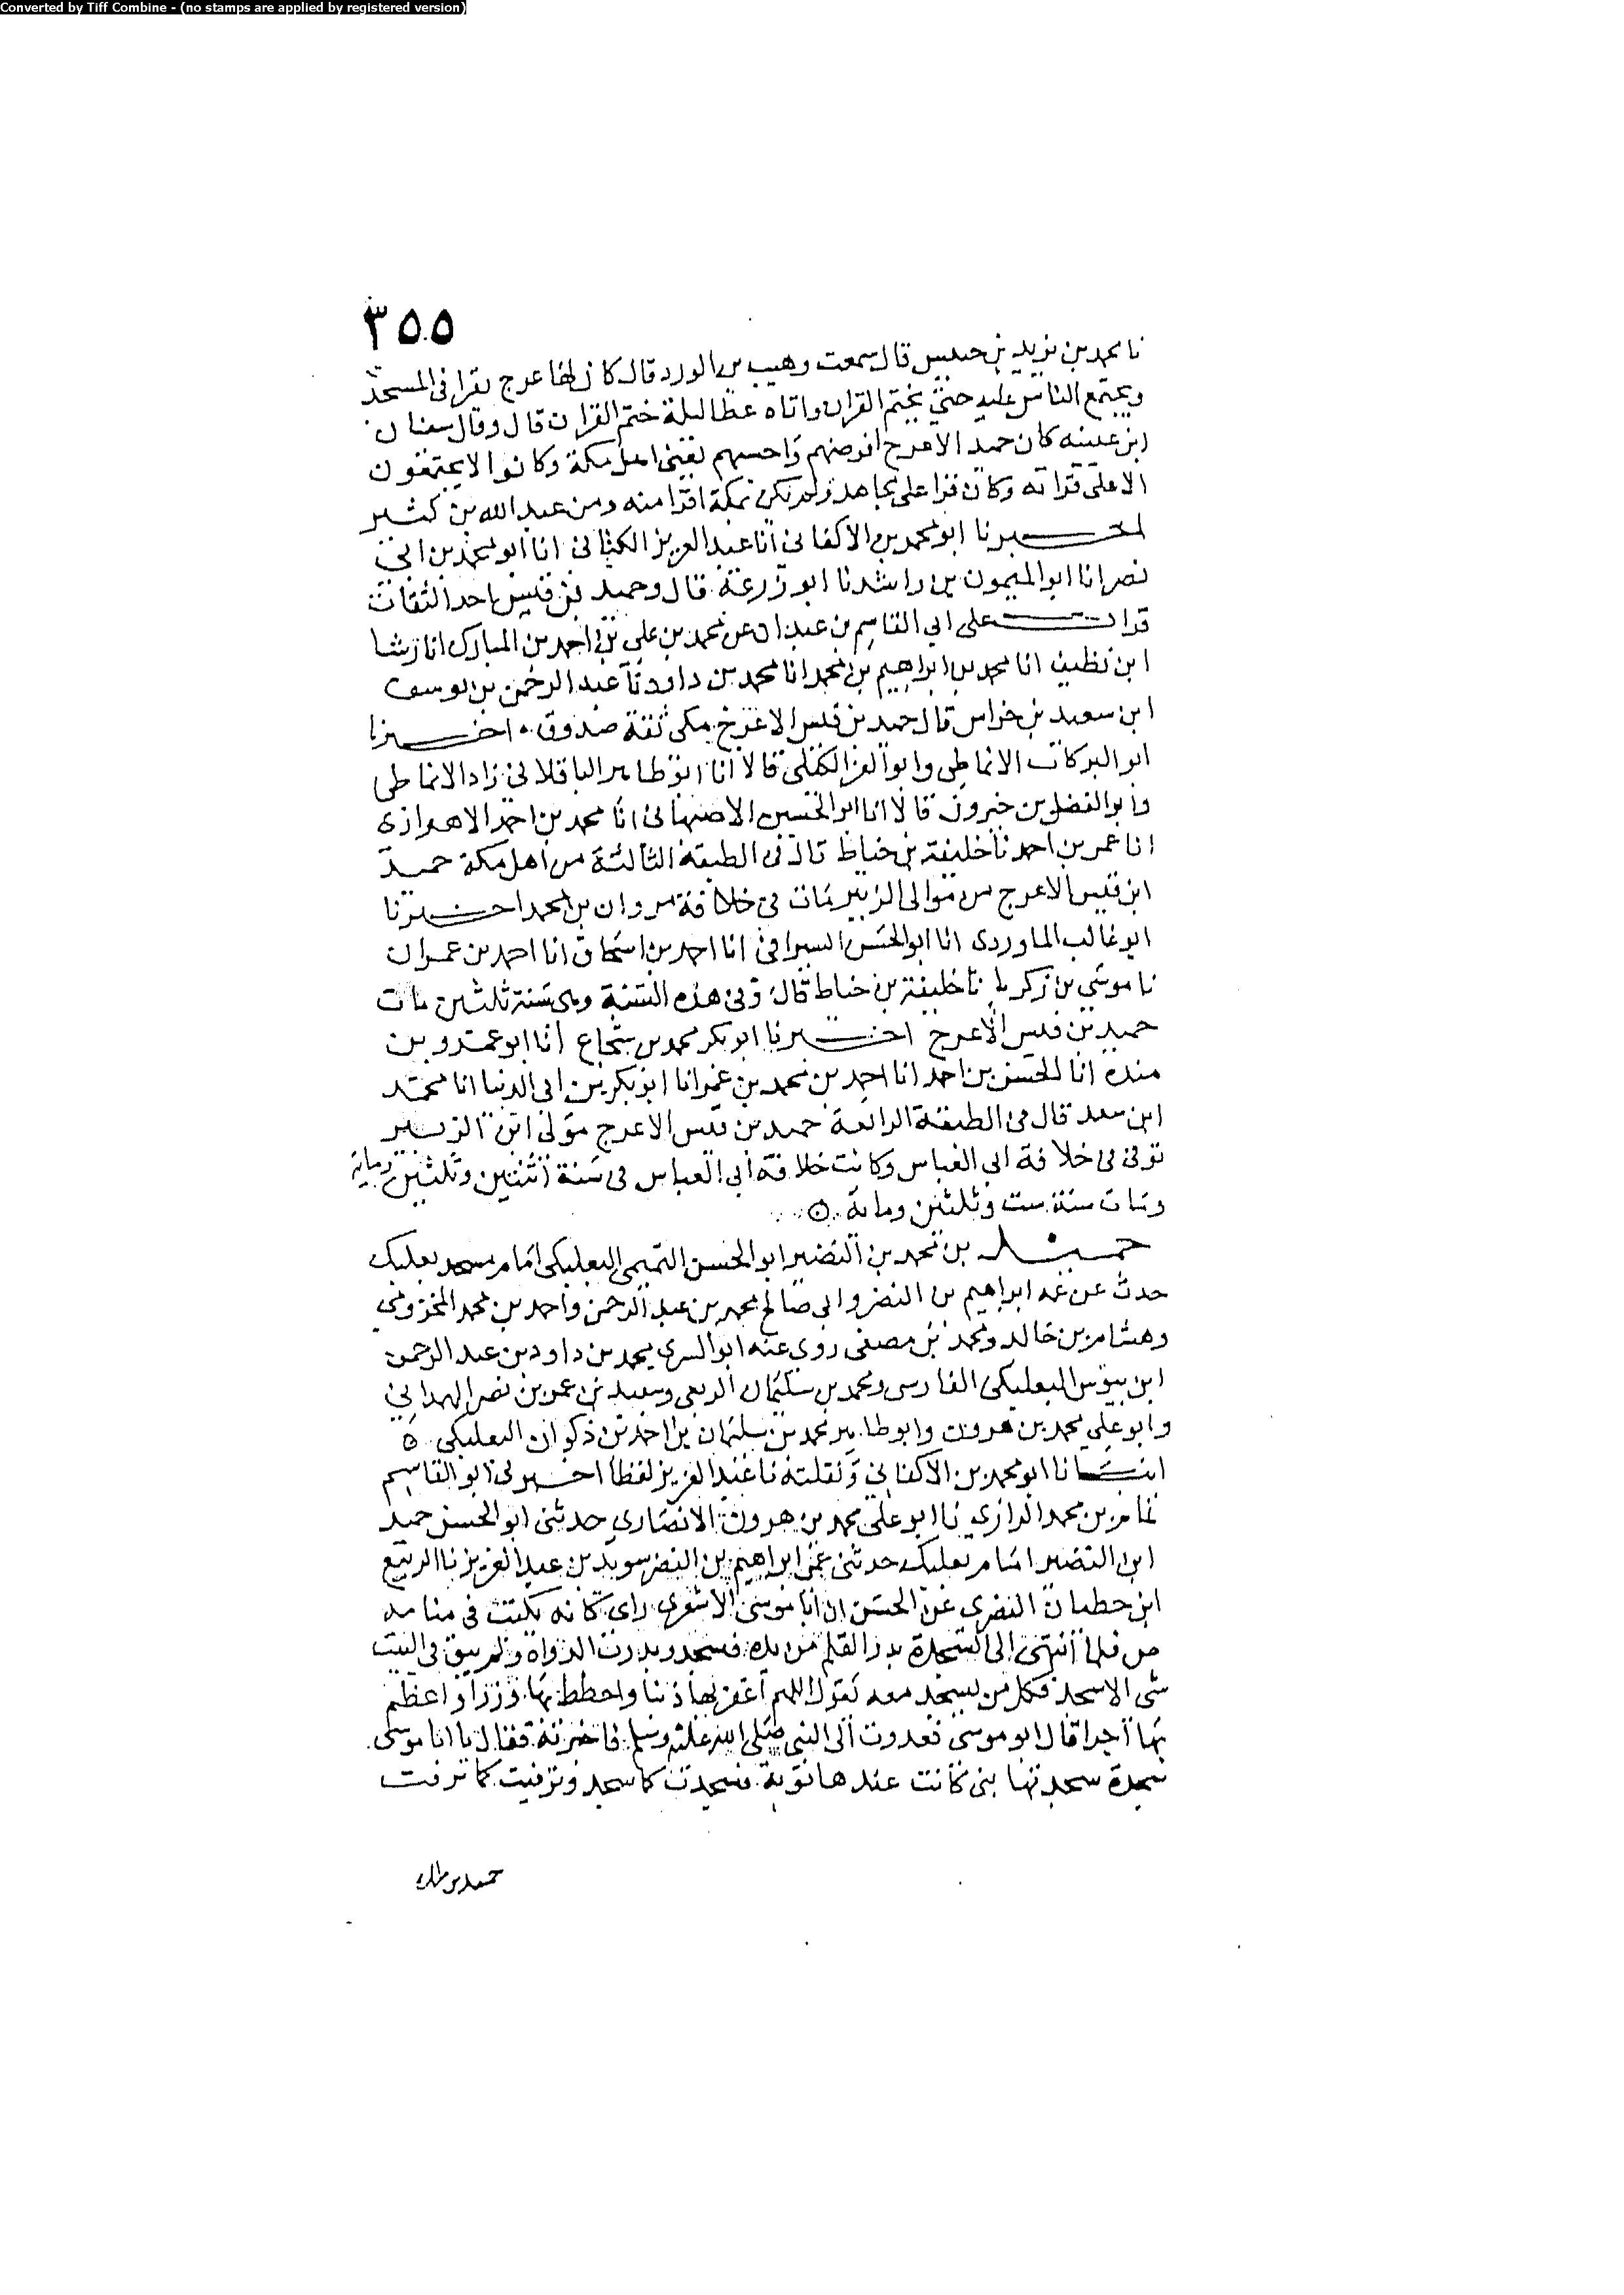 Converted by Tiff Combine - (no stamps are applied by registered version)
٣٥٥
نا محمد بن يزيد بن خنيس قال سمعت وهيب بن الورد قال كان الاعرج يقرا فى المسجد
ويجتمع الناس عليه حتى يختم القران واتاه عطا ليلة ختم القران قال وقال سفيان
ابن عيينه كان حميد الاعرج افرضهم واحسبهم يعنى اهل مكة وكانوا لا يجتمعون
الا على قراته وكان قرا على مجاهد ولم يكن بمكة اقرا منه ومن عبد الله بن كثير
اخبرنا ابو محمد بن الاكفانى انا عبد العزيز الكتانى انا ابو محمد بن ابى
نصر انا ابو الميمون بن راشد نا ابو زرعة قال وحميد بن قيس احد الثقات
قرات على ابى القاسم بن عبدان عن محمد بن على بن احمد بن المبارك انا رشا
ابن نظيف انا محمد بن ابراهيم بن محمد انا محمد بن داود نا عبد الرحمن بن يوسف
ابن سعيد بن خراش قال حميد بن قيس الاعرج مكى ثقة صدوق ۰ اخبرنا
ابو البركات الانماطى وابو العز الكيلى قالا انا ابو طاهر الباقلانى زاد الانماطى
وابو الفضل بن خيرون قالا انا ابو الحسين الاصبهانى انا محمد بن احمد الاهوازى
انا عمر بن احمد نا خليفة بن خياط قال فى الطبقة الثالثة من اهل مكة حميد
ابن قيس الاعرج من موالى الزبير مات فى خلافة مروان بن محمد اخبرنا
ابو غالب الماوردى انا ابو الحسن السيرافى انا احمد بن اسحاق انا احمد بن عمران
نا موسى بن زكريا نا خليفة بن خياط قال وفى هذه السنة وهى سنة ثلثين مات
حميد بن قيس الاعرج اخبرنا ابو بكر محمد بن شجاع انا ابو عمرو بن
منده انا الحسن بن احمد انا احمد بن محمد بن عمر انا ابو بكر بن ابى الدنيا انا محمد
ابن سعد قال فى الطبقة الرابعة حميد بن قيس الاعرج مولى ابن الزبير
توفى فى خلافة ابى العباس وكانت خلافة ابى العباس فى سنة اثنين وثلثين ومايه
ومات سنة ست وثلثين ومائة ۝
حميد بن محمد بن النضير ابو الحسن التميمى البعلبكى امام مسجد بعلبك
حدث عن عمه ابراهيم بن النضر وابى صالح محمد بن عبد الرحمن واحمد بن محمد المخزومى
وهشام بن خالد ومحمد بن مصفى روى عنه ابو السرى محمد بن داود بن عبد الرحمن
ابن بيوس البعلبكى الفارسى ومحمد بن سليمان الربعى وسعيد بن عمر بن نصر الهمدانى
وابو على محمد بن هرون وابو طاهر محمد بن سليمان بن احمد بن ذكوان البعلبكى ه
انبانا ابو محمد بن الاكفانى ونقلته نا عبد العزيز لفظا اخبرنى ابو القاسم
تمام بن محمد الرازى نا ابو على محمد بن هرون الانصارى حدثنى ابو الحسن حميد
ابن النضير امام بعلبك حدثنى عمى ابراهيم بن النضر سويد بن عبد العزيز نا الربيع
ابن حظيان النضرى عن الحسن ان ابا موسى الاشعرى راى كانه يكتب فى منامه
ص فلما انتهى الى السجدة بدر القلم من يده فسجد وبدرت الدواة ولم يبق فى البيت
شى الا سجد فكل من يسجد معه يقول اللهم اغفر بها ذنبا واحطط بها وزرا واعظم
بها اجرا قال ابو موسى فغدوت الى النبى صلى الله عليه وسلم فاخبرته فقال يا ابا موسى
سجدة سجدتها نبى كانت عندها توبة فسجدت كما سجد وترقبت كما ترقب
حميد بن